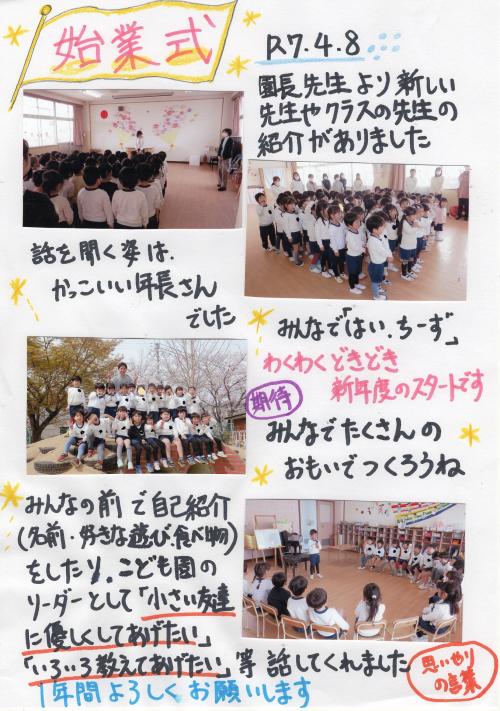 始業式
R7.4.8
園長先生より新しい
先生やクラスの先生の
紹介がありました
話を聞く姿は、
かっこいい年長さん
でした
みんなで「はい、ちーず」
わくわくどきどき
新年度のスタートです
期待
みんなでたくさんの
おもいでつくろうね
みんなの前で自己紹介
(名前・好きな遊び、食べ物)
をしたり、こども園の
リーダーとして「小さい友達
に優しくしてあげたい」
「いろいろ教えてあげたい」等話してくれました
思いやり
の言葉
1年間よろしくお願いします